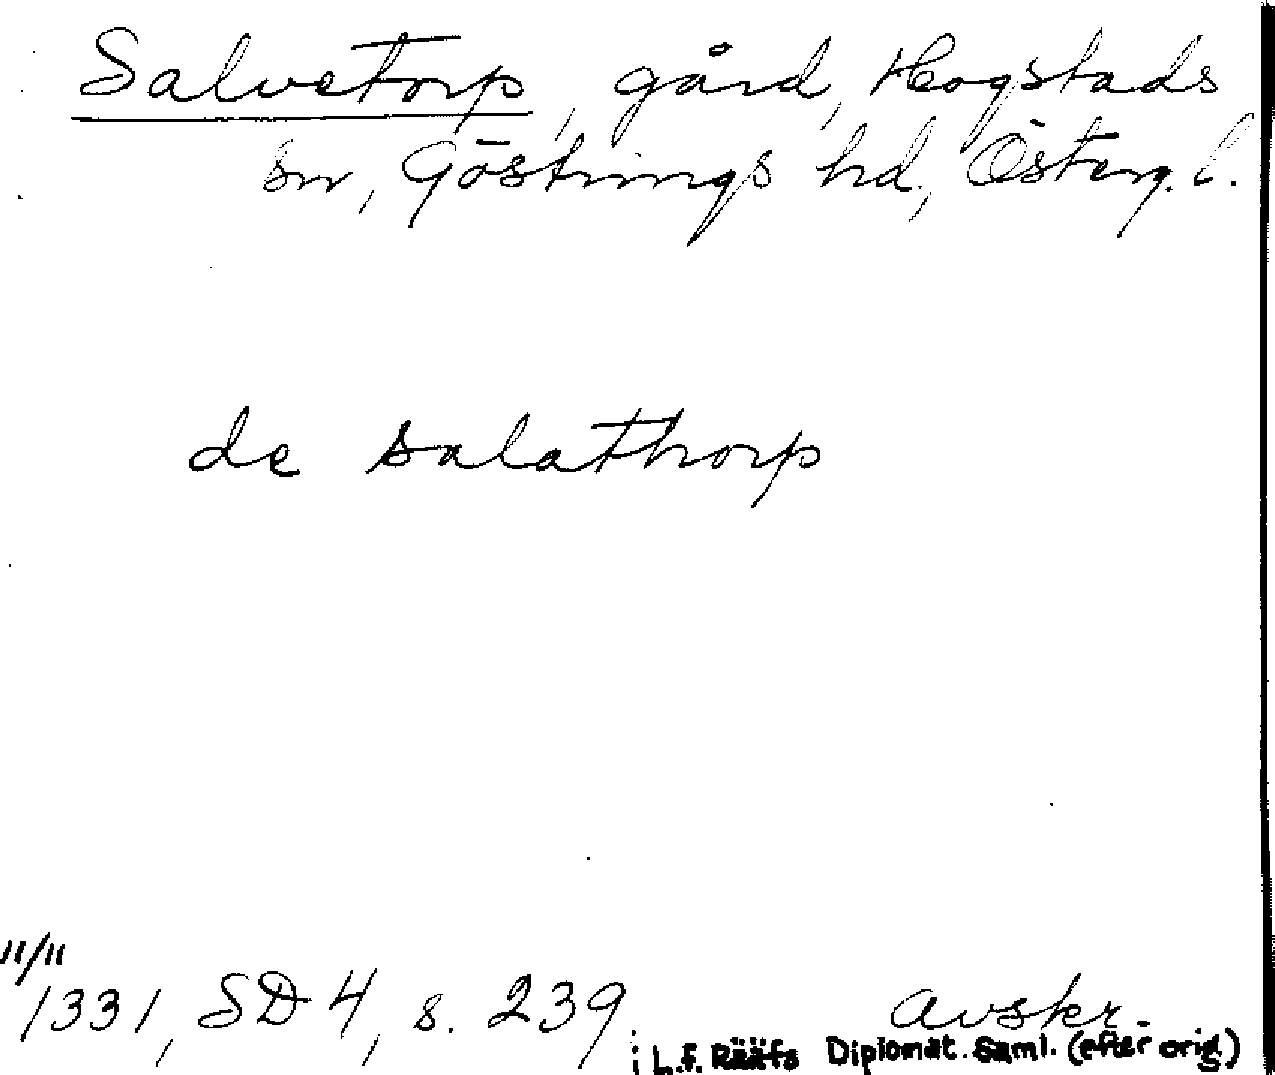 Salvetorp, gård, Hogstads
sn, Göstrings hd., Österg. l.
de salathorp
11/11
1331, SD 4, s. 239 avskr.
i L.F. Rääfs Diplomat. Saml. (efter orig.)